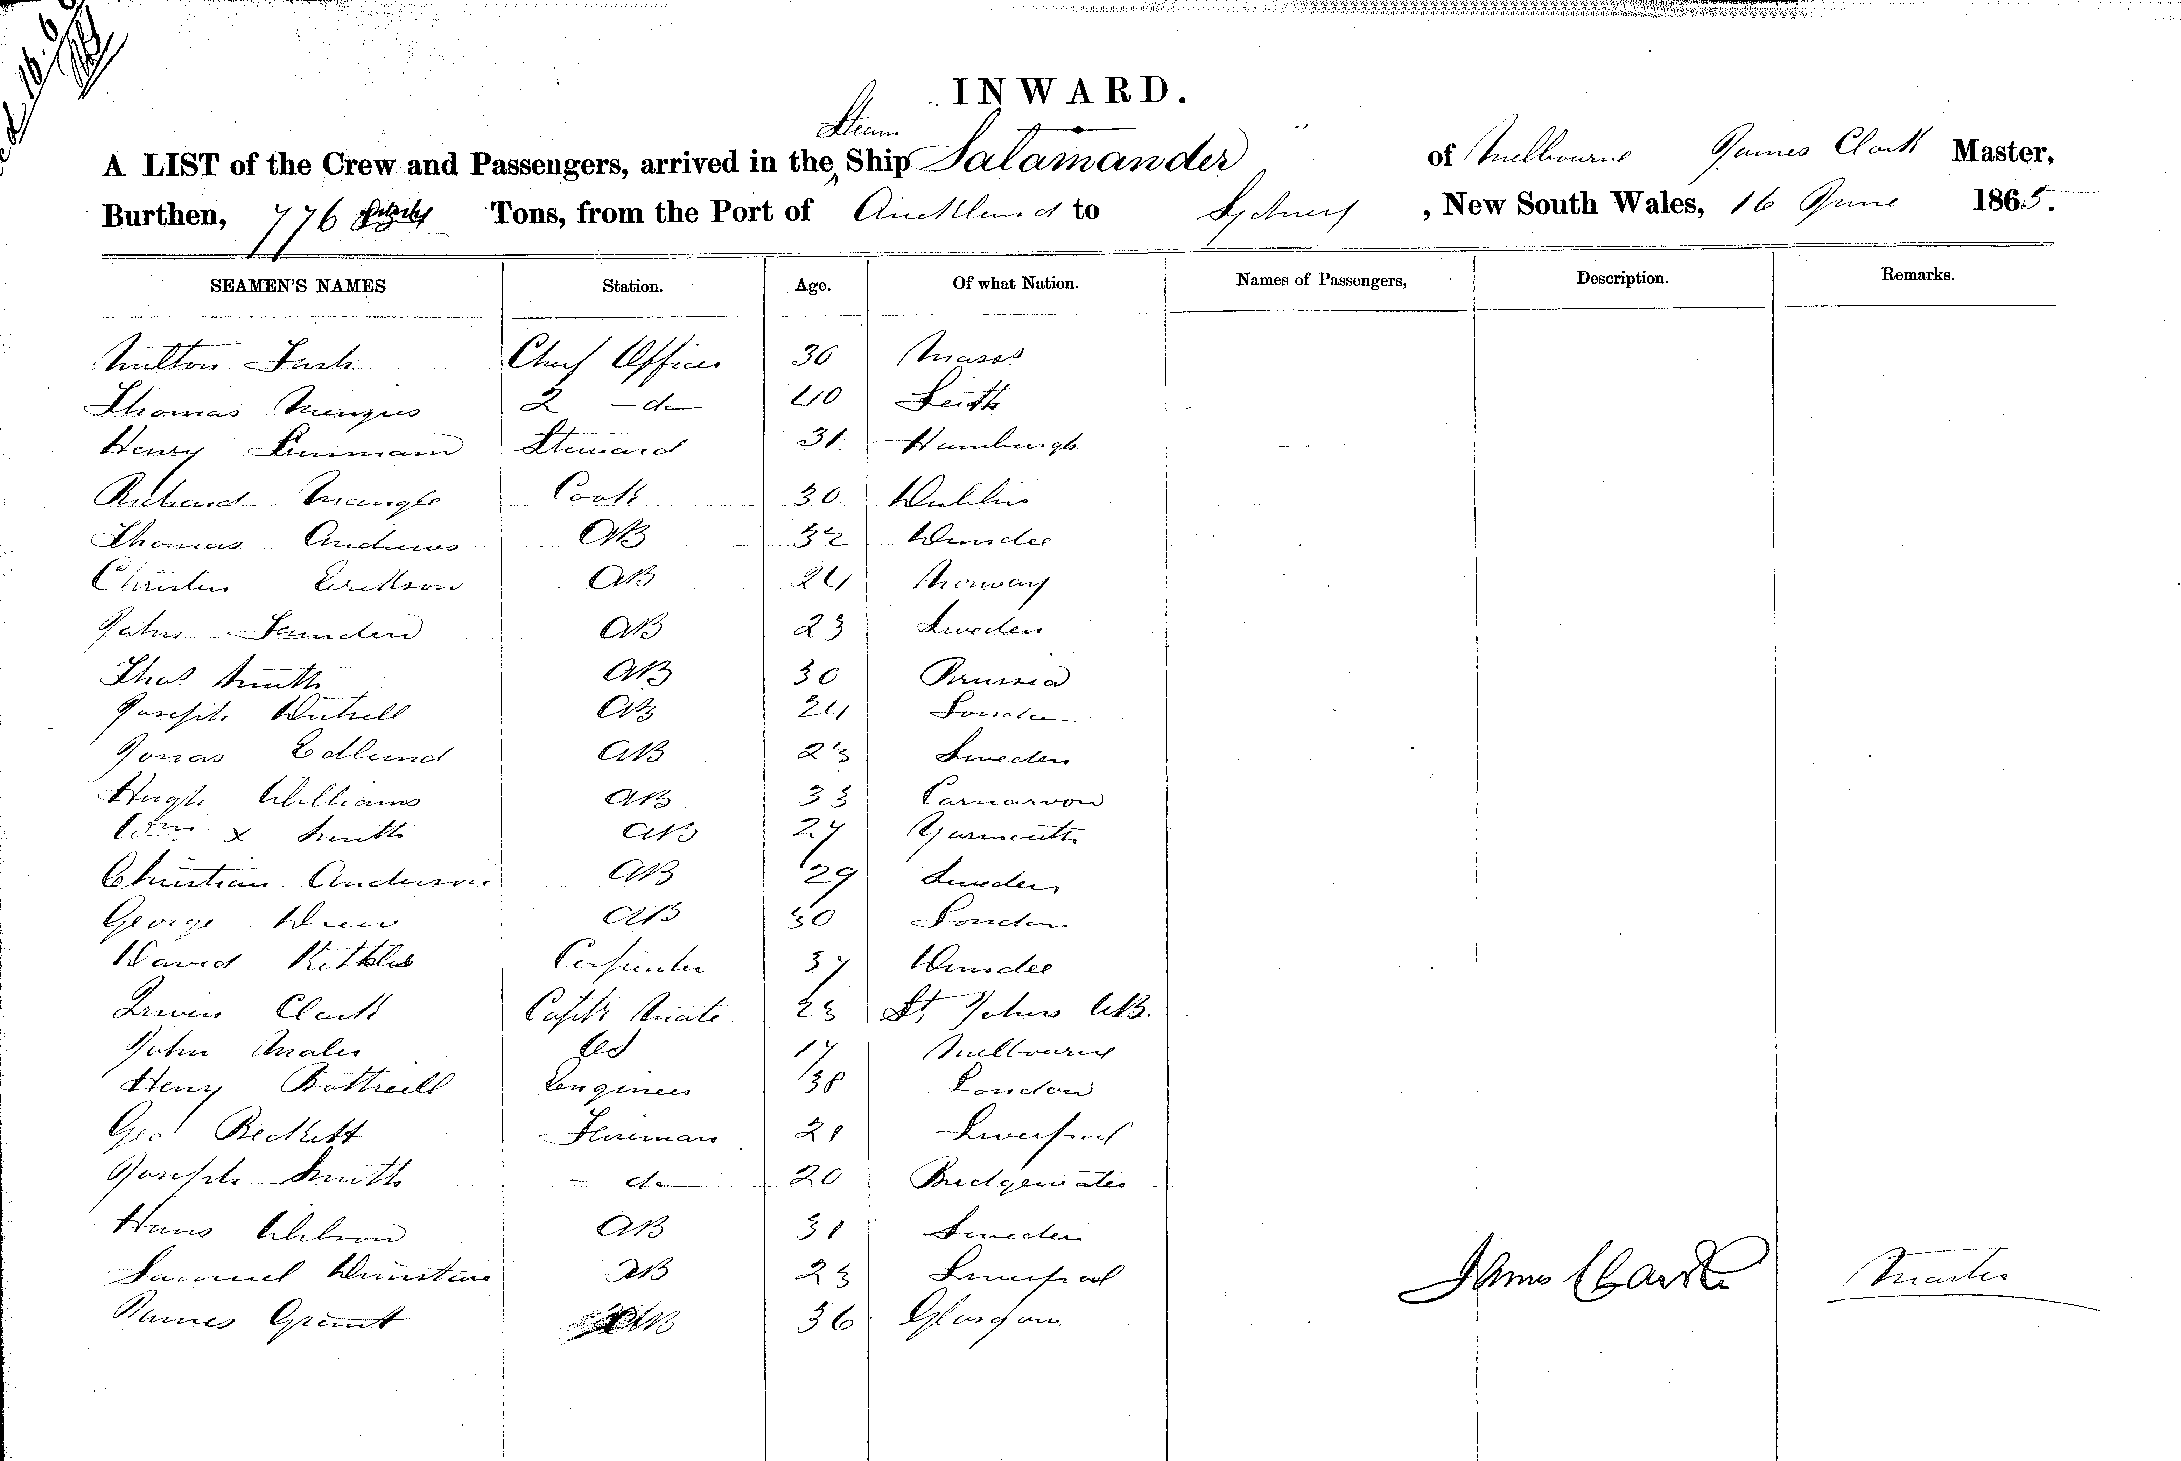 INWARD.
Steam
A LIST of the Crew and Passengers, arrived in the Ship Salamander of Melbourne James Clark Master,
Burthen, 776 Tons, from the Port of Auckland to Sydney, New South Wales, 16 June 1865.
SEAMEN'S NAMES Station. Age. Of what Nation. Names of Passengers, Description. Remarks.
Milton Chief Officer 30 Mass
Thomas Menzies 2 - do - 40 Leith
Henry Steward 31 Hamburgh
Richard Mangle Cook 30 Dublin
Thomas Andrews AB 32 Dundee
Christen Erikson AB 24 Norway
John AB 23 Sweden
Thos Smith AB 30 Prussia
Joseph AB 24 London
Jonas Edlund AB 23 Sweden
Hugh Williams AB 33 Carnarvon
Wm x Smith AB 27 Yarmouth
Christian Anderson AB 29 Sweden
George Drew AB 30 London
David Carpenter 37 Dundee
Irwin Clark Capts Mate 23 St Johns NB.
John Males 17 Melbourne
Henry Bottrell Engineer 38 London
Geo Beckett Fireman 21 Liverpool
Joseph Smith - do - 20 Bridgewater
Hans Wilson AB 31 Sweden
Samuel Dunstine AB 23 Liverpool
James Grant AB 36 Glasgow
James Clark Master